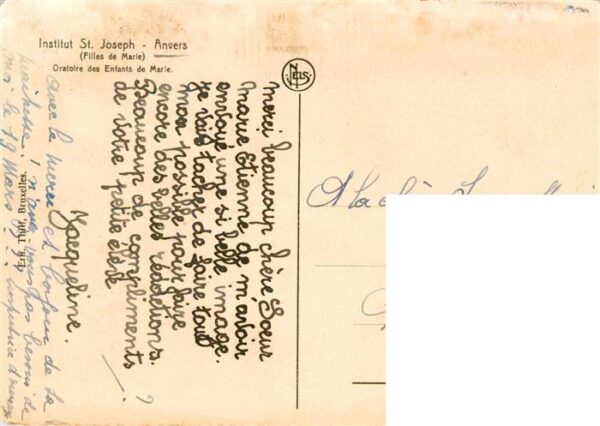 Institut St. Joseph - Anvers
(Filles de Marie)
Oratoire des Enfants de Marie.
NELS
Merci beaucoup chère Soeur
Marie Etienne de m'avoir
envoyé une si belle image.
Je vais tacher de faire tout
mon possible pour faire
encore des belles rédactions.
Beaucoup de compliments
de votre petite élève
Jacqueline.
Ern. Thill, Bruxelles.
avec le merci et bonjour de la
n'avez vous pas besoin de
moi le 19 Mars
A la